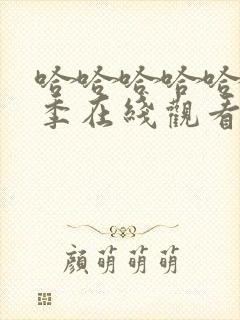 哈哈哈哈哈
季在綫觀看
顏萌萌萌